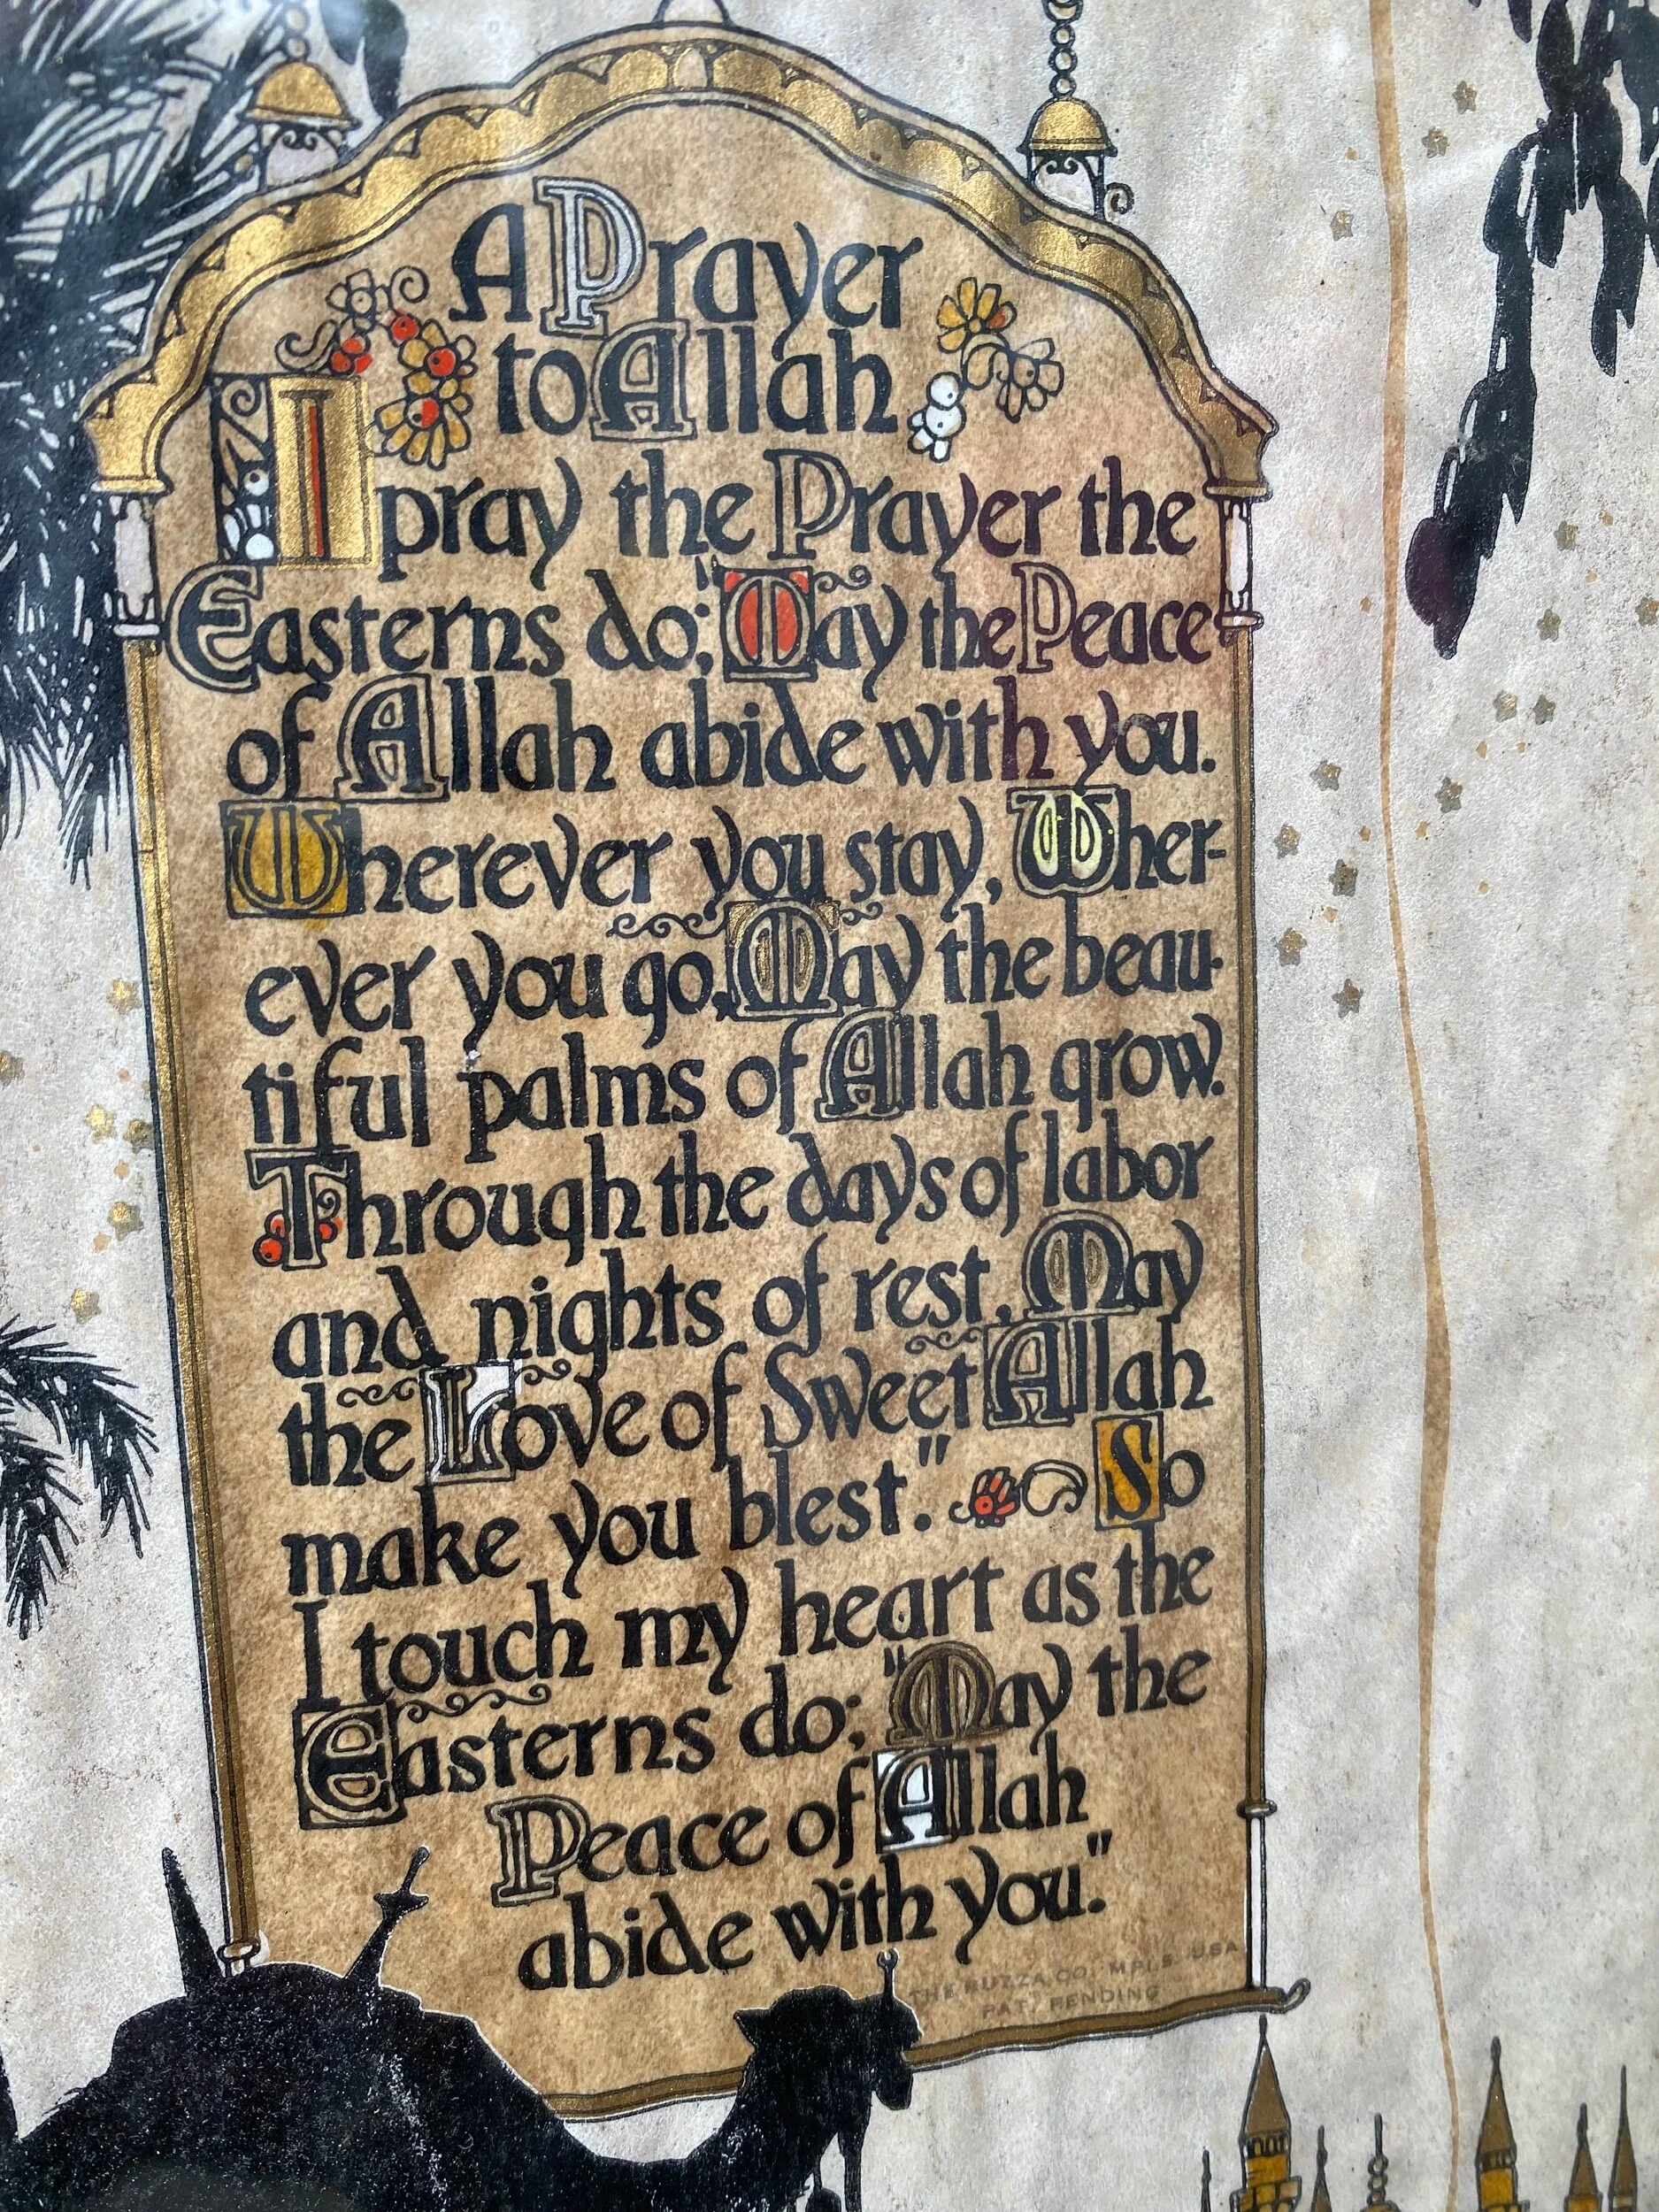 A Prayer
to Allah
I pray the Prayer the
Easterns do; "May the Peace
of Allah abide with you.
Wherever you stay, Wher-
ever you go, May the beau-
tiful palms of Allah grow.
Through the days of labor
and nights of rest, May
the Love of Sweet Allah
make you blest." So
I touch my heart as the
Easterns do; "May the
Peace of Allah
abide with you."
THE BUZZA CO. MPLS. USA
PAT. PENDING